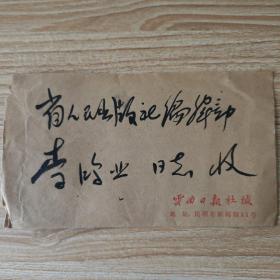 省人民出版社编辑部
李鸣业 同志 收
云南日报社缄
地址:昆明市新闻路51号